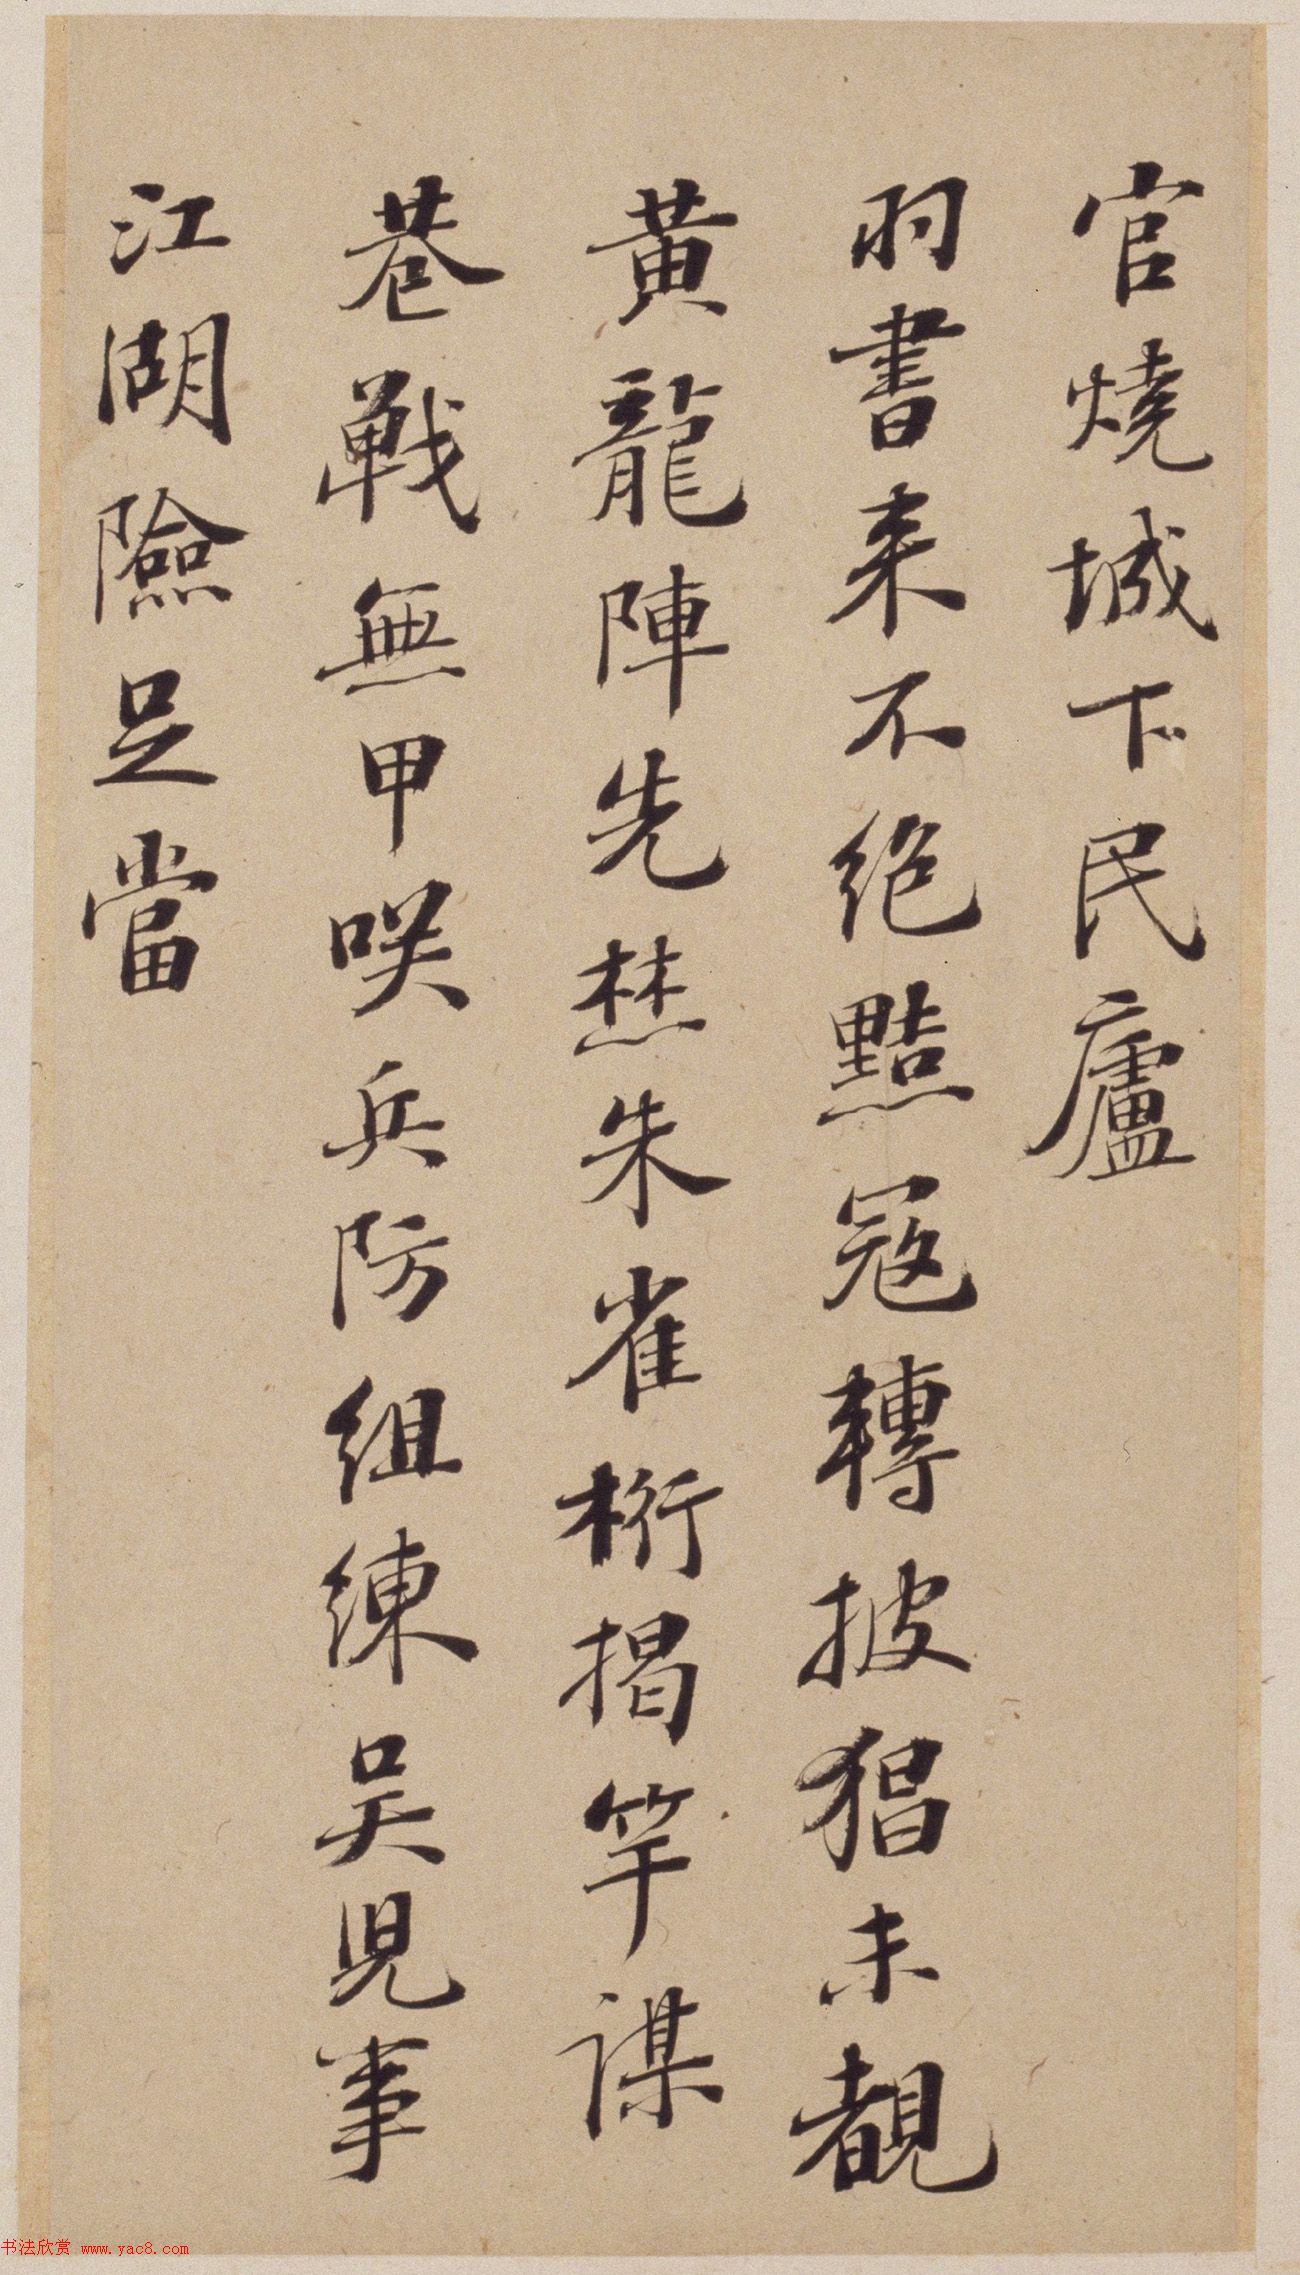 官燒城下民廬
羽書来不絶黠寇轉披猖未覩
黃龍陣先焚朱雀桁揭竿謀
巷戰無甲咲兵防組練吴兒事
江湖險足當
书法欣赏 www.yac8.com